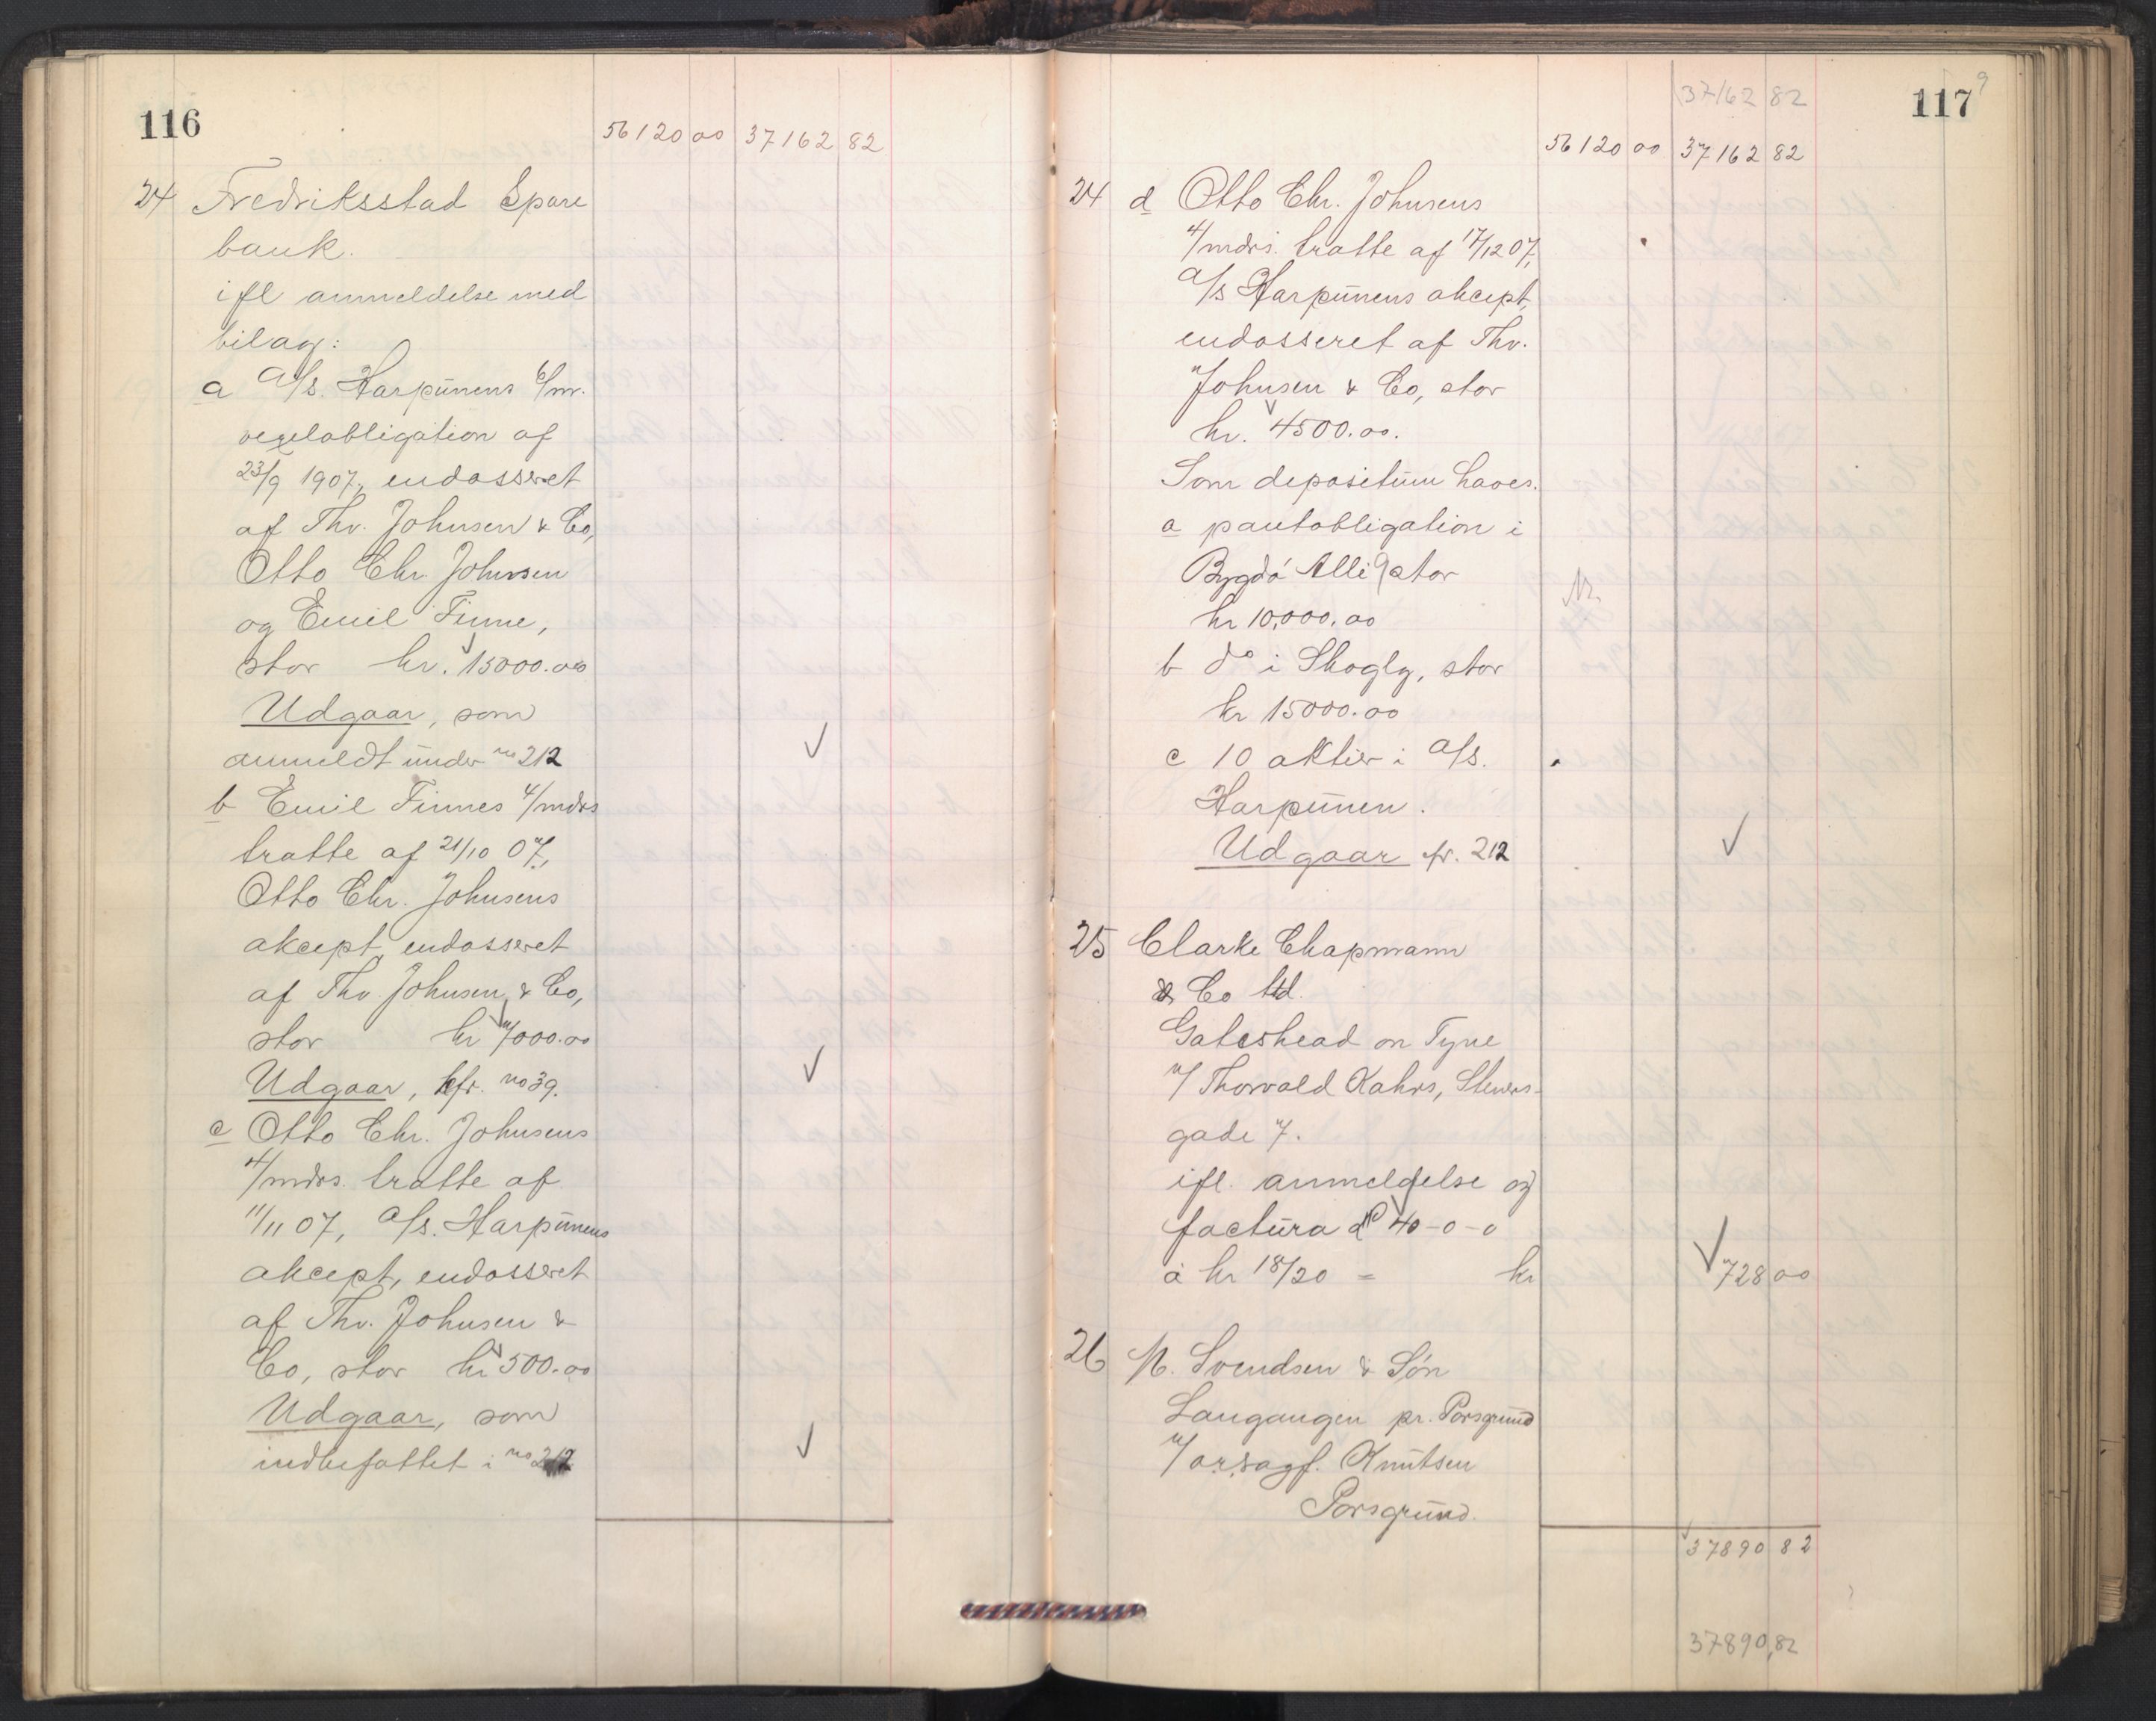 116
56120 00 37162 82
24 Fredriksstad Spare
bank.
ifl anmeldelse med
bilag:
a A/s. Harpunens 6/m.
vexelobligation af
23/9 1907, endosseret
af Thv. Johnsen & Co,
Otto Chr. Johnsen
og Emil Finne,
stor kr. 15000.00
Udgaar, som
anmeldt under no 212
b Emil Finnes 4/mdrs
tratte af 21/10 07,
Otto Chr. Johnsens
akcept, endosseret
af Thv. Johnsen & Co,
stor kr 7000.00
Udgaar, kfr. no 39.
c Otto Chr. Johnsens
4/mdrs. tratte af
11/11 07, A/s. Harpunens
akcept, endosseret
af Thv. Johnsen &
Co, stor kr 500.00
Udgaar, som
indbefattet i no 212
117
37162 82
56120 00 37162 82
24 d Otto Chr. Johnsens
4/mdrs. tratte af 17/12 07,
A/s Harpunens akcept,
endosseret af Thv.
Johnsen & Co, stor
kr. 4500.00.
Som depositum haves.
a pantobligation i
Bygdö Allé 9 stor
kr 10,000.00
b do i Skogly, stor
kr 15000.00
c 10 aktier i A/s.
Harpunen.
Udgaar fr. 212
25 Clarke Chapmann
& Co ltd.
Gateshead on Tyne
v/ Thorvald Kahrs, Steners-
gade 7.
ifl. anmeldelse og
factura 40-0-0
à kr 18/20 = kr 728 00
26 N. Svendsen & Søn
Langangen pr. Porsgrund
v/ o.r.sagf. Knutsen
Porsgrund.
37890 82
37890,82